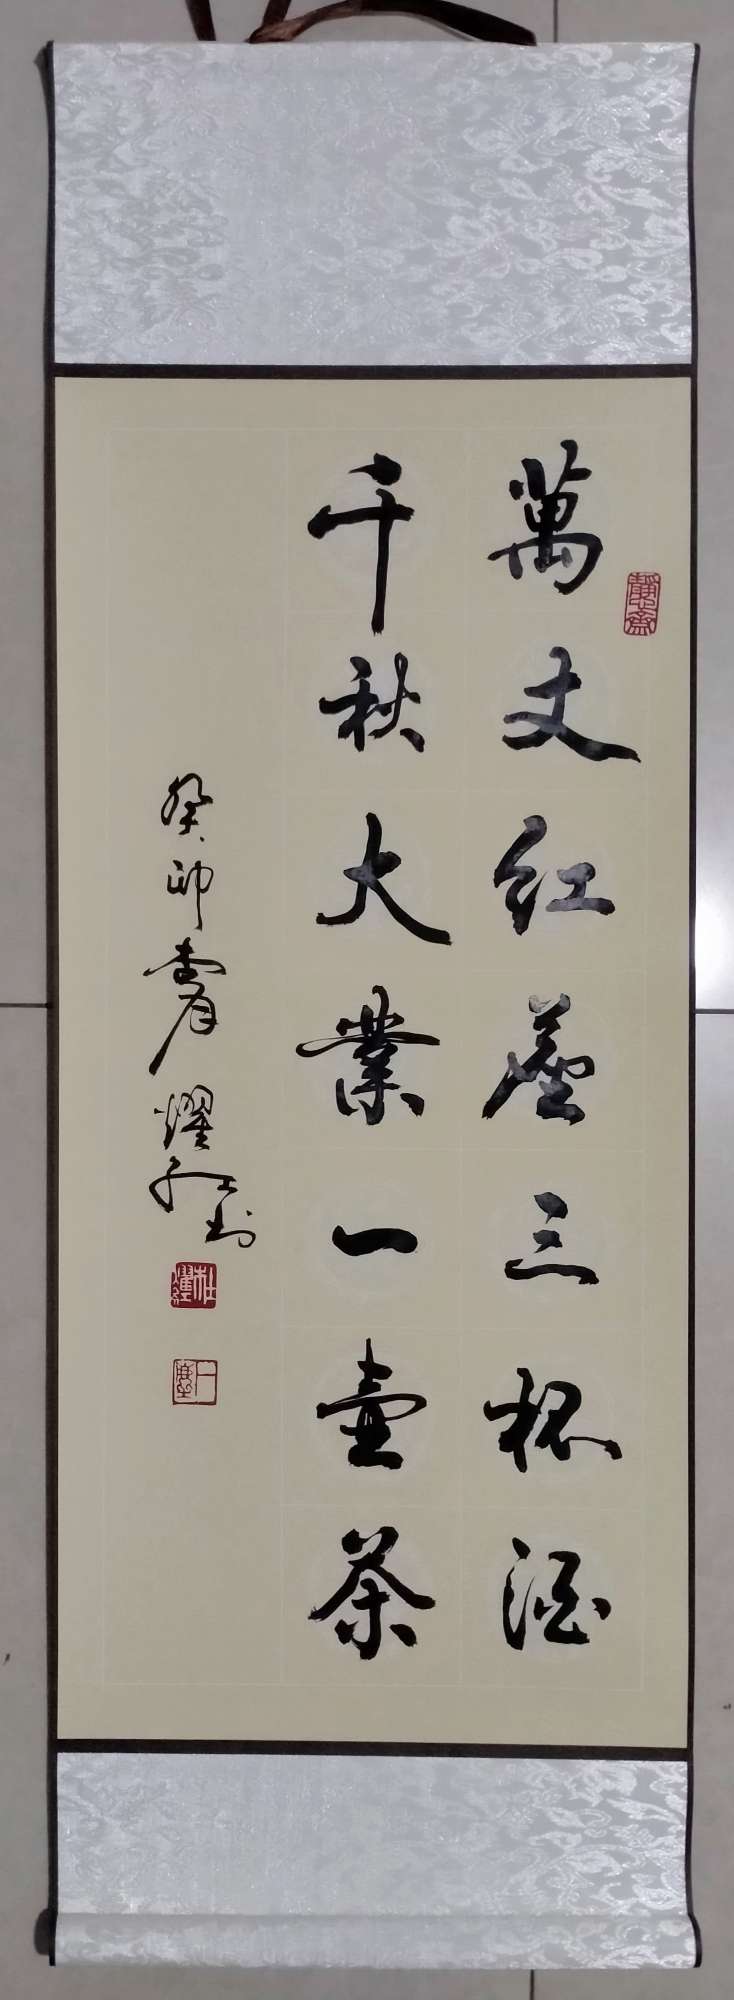 萬丈红塵三杯酒
千秋大業一壺茶
癸卯春月耀红书